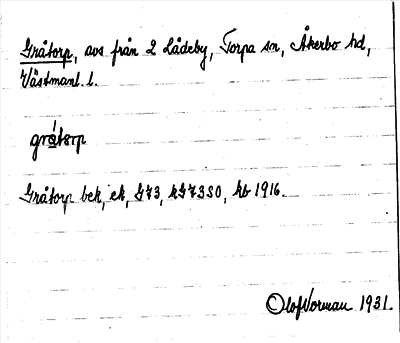 Gråtorp, avs från 2 Lådeby, Torpa sn, Åkerbo hd,
Västmanl. l.
gråtorp
Gråtorp bek, ek, G73, kG73SO, kb 1916.
Olof Norman 1931.